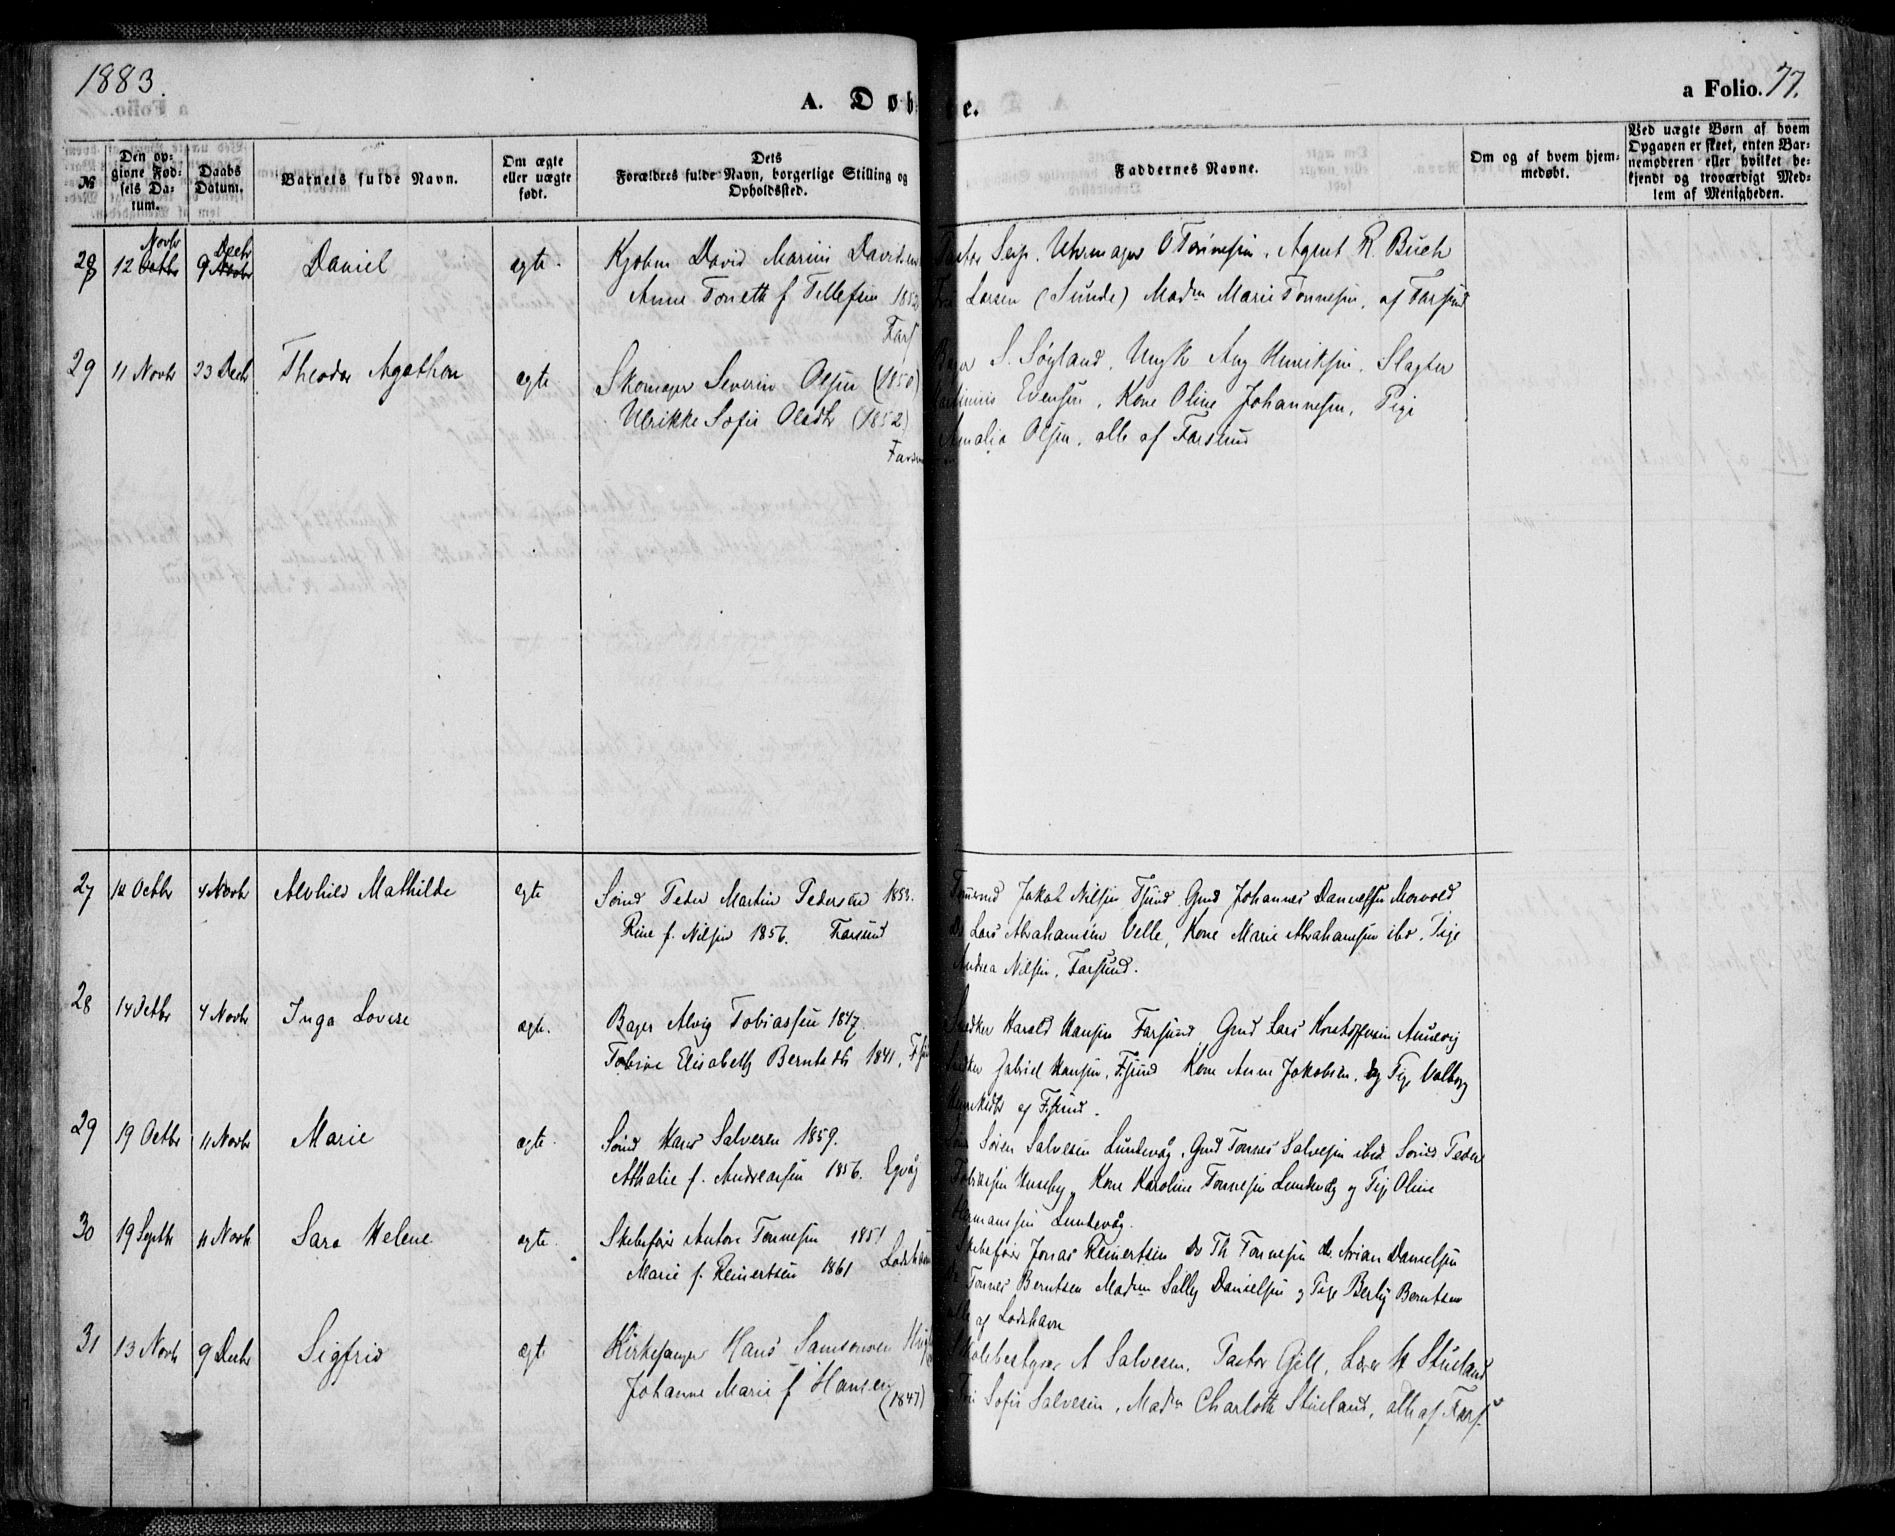 1883.
A. Døbte.
a Folio. 77.
№
Den opgivne Fødsels Datum.
Daabs Datum.
Barnets fulde Navn.
Om ægte eller uægte født.
Dets Forældres fulde Navn, borgerlige Stilling og Opholdssted.
Faddernes Navne.
Om og af hvem hjemmedøbt.
Ved uægte Børn af hvem Opgaven er skeet, enten Barnemoderen eller hvilket bekjendt og troværdigt Medlem af Menigheden.
28 12 Novbr Octbr 9 Decbr Novbr Daniel ægte. Kjøbm David Marius Davidsen
Anne Toneth f Tellefsen 1852
Fars
Uhrmager O Tønnesen. Agent R. Buch
Larsen (Sunde) Madm Marie Tønnesen, af Farsund
29 11 Novbr 23 Decbr Theodor Agathon ægte Skomager Severin Olsen (1850)
Ulrikke Sofie Olsdtr (1852)
Farsun
S. Søyland, Ungk Aug Henriksen, Slagter
Evensen, Kone Oline Johannesen, Pige
Amalia Olsen, alle af Farsund
27 14 Octbr 4 Novbr Alvhild Mathilde ægte Sømd Peder Martin Pedersen 1853.
Rine f. Nilsen 1856. Farsund
Jakob Nilsen Fsund Gmd Johannes Danielsen
Do Lars Abrahamsen Velle, Kone Marie Abrahamsen ibd, Pige
Andrea Nilsen, Farsund.
28 14 Octbr 4 Novbr Inga Lovise ægte. Bager Alvig Tobiassen 1847
Tobine Elisabeth Berntsdtr 1841, Fsund
Harald Hansen Farsund, Gmd Lars
Gabriel Hansen, Fsund Kone Anne Jakobsen, og Pige Valborg
af Fsund.
29 19 Octbr 11 Novbr Marie ægte. Sømd Hans Salvesen 1859.
Athalie f. Andreassen 1856. Egvåg
Søren Salvesen Lundevåg, Gmd Tønnes Salvesen ibid Sømd Peder
Tobiassen Huseby, Kone Karoline Tønnesen Lundevåg og Pige Oline
Hermanssen Lundevåg.
30 19 Septbr 11 Novbr Sara Helene ægte Skibsfører Anton Tønnesen 1851
Marie f. Reinertsen 1861 Loshavn
Skibsfører Jonas Reinertsen Do Th Tønnesen do Arian Danielsen
Do Tønnes Berntsen Madm Sally Danielsen og Pige Berly Berntsen
alle af Loshavn
31 13 Novbr 9 Decbr Sigfrid ægte Kirkesanger Hans Samsonsen
Johanne Marie f Hansen (1847)
Skolebestyrer A Salvesen, Pastor Gjill, Lærer H Stusland
Fru Sofie Salvesen, Madm Charlotte Stusland, alle af Fars.